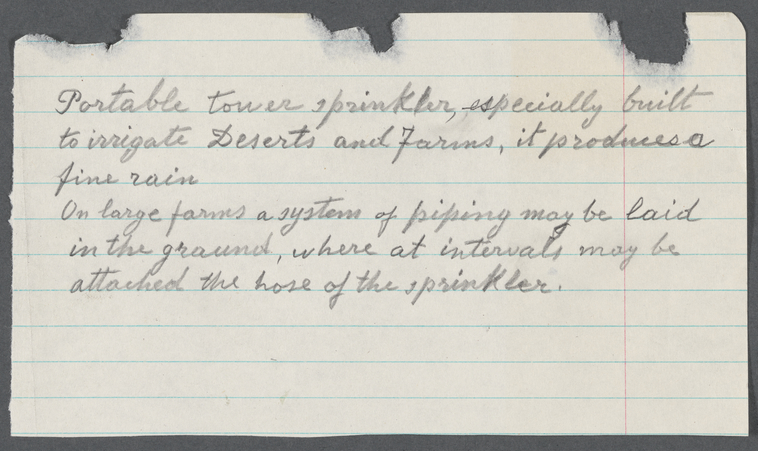 Portable tower sprinkler, especially built
to irrigate Deserts and Farms, it produces a
fine rain
On large farms a system of piping may be laid
in the graund, where at intervals may be
attached the hose of the sprinkler.